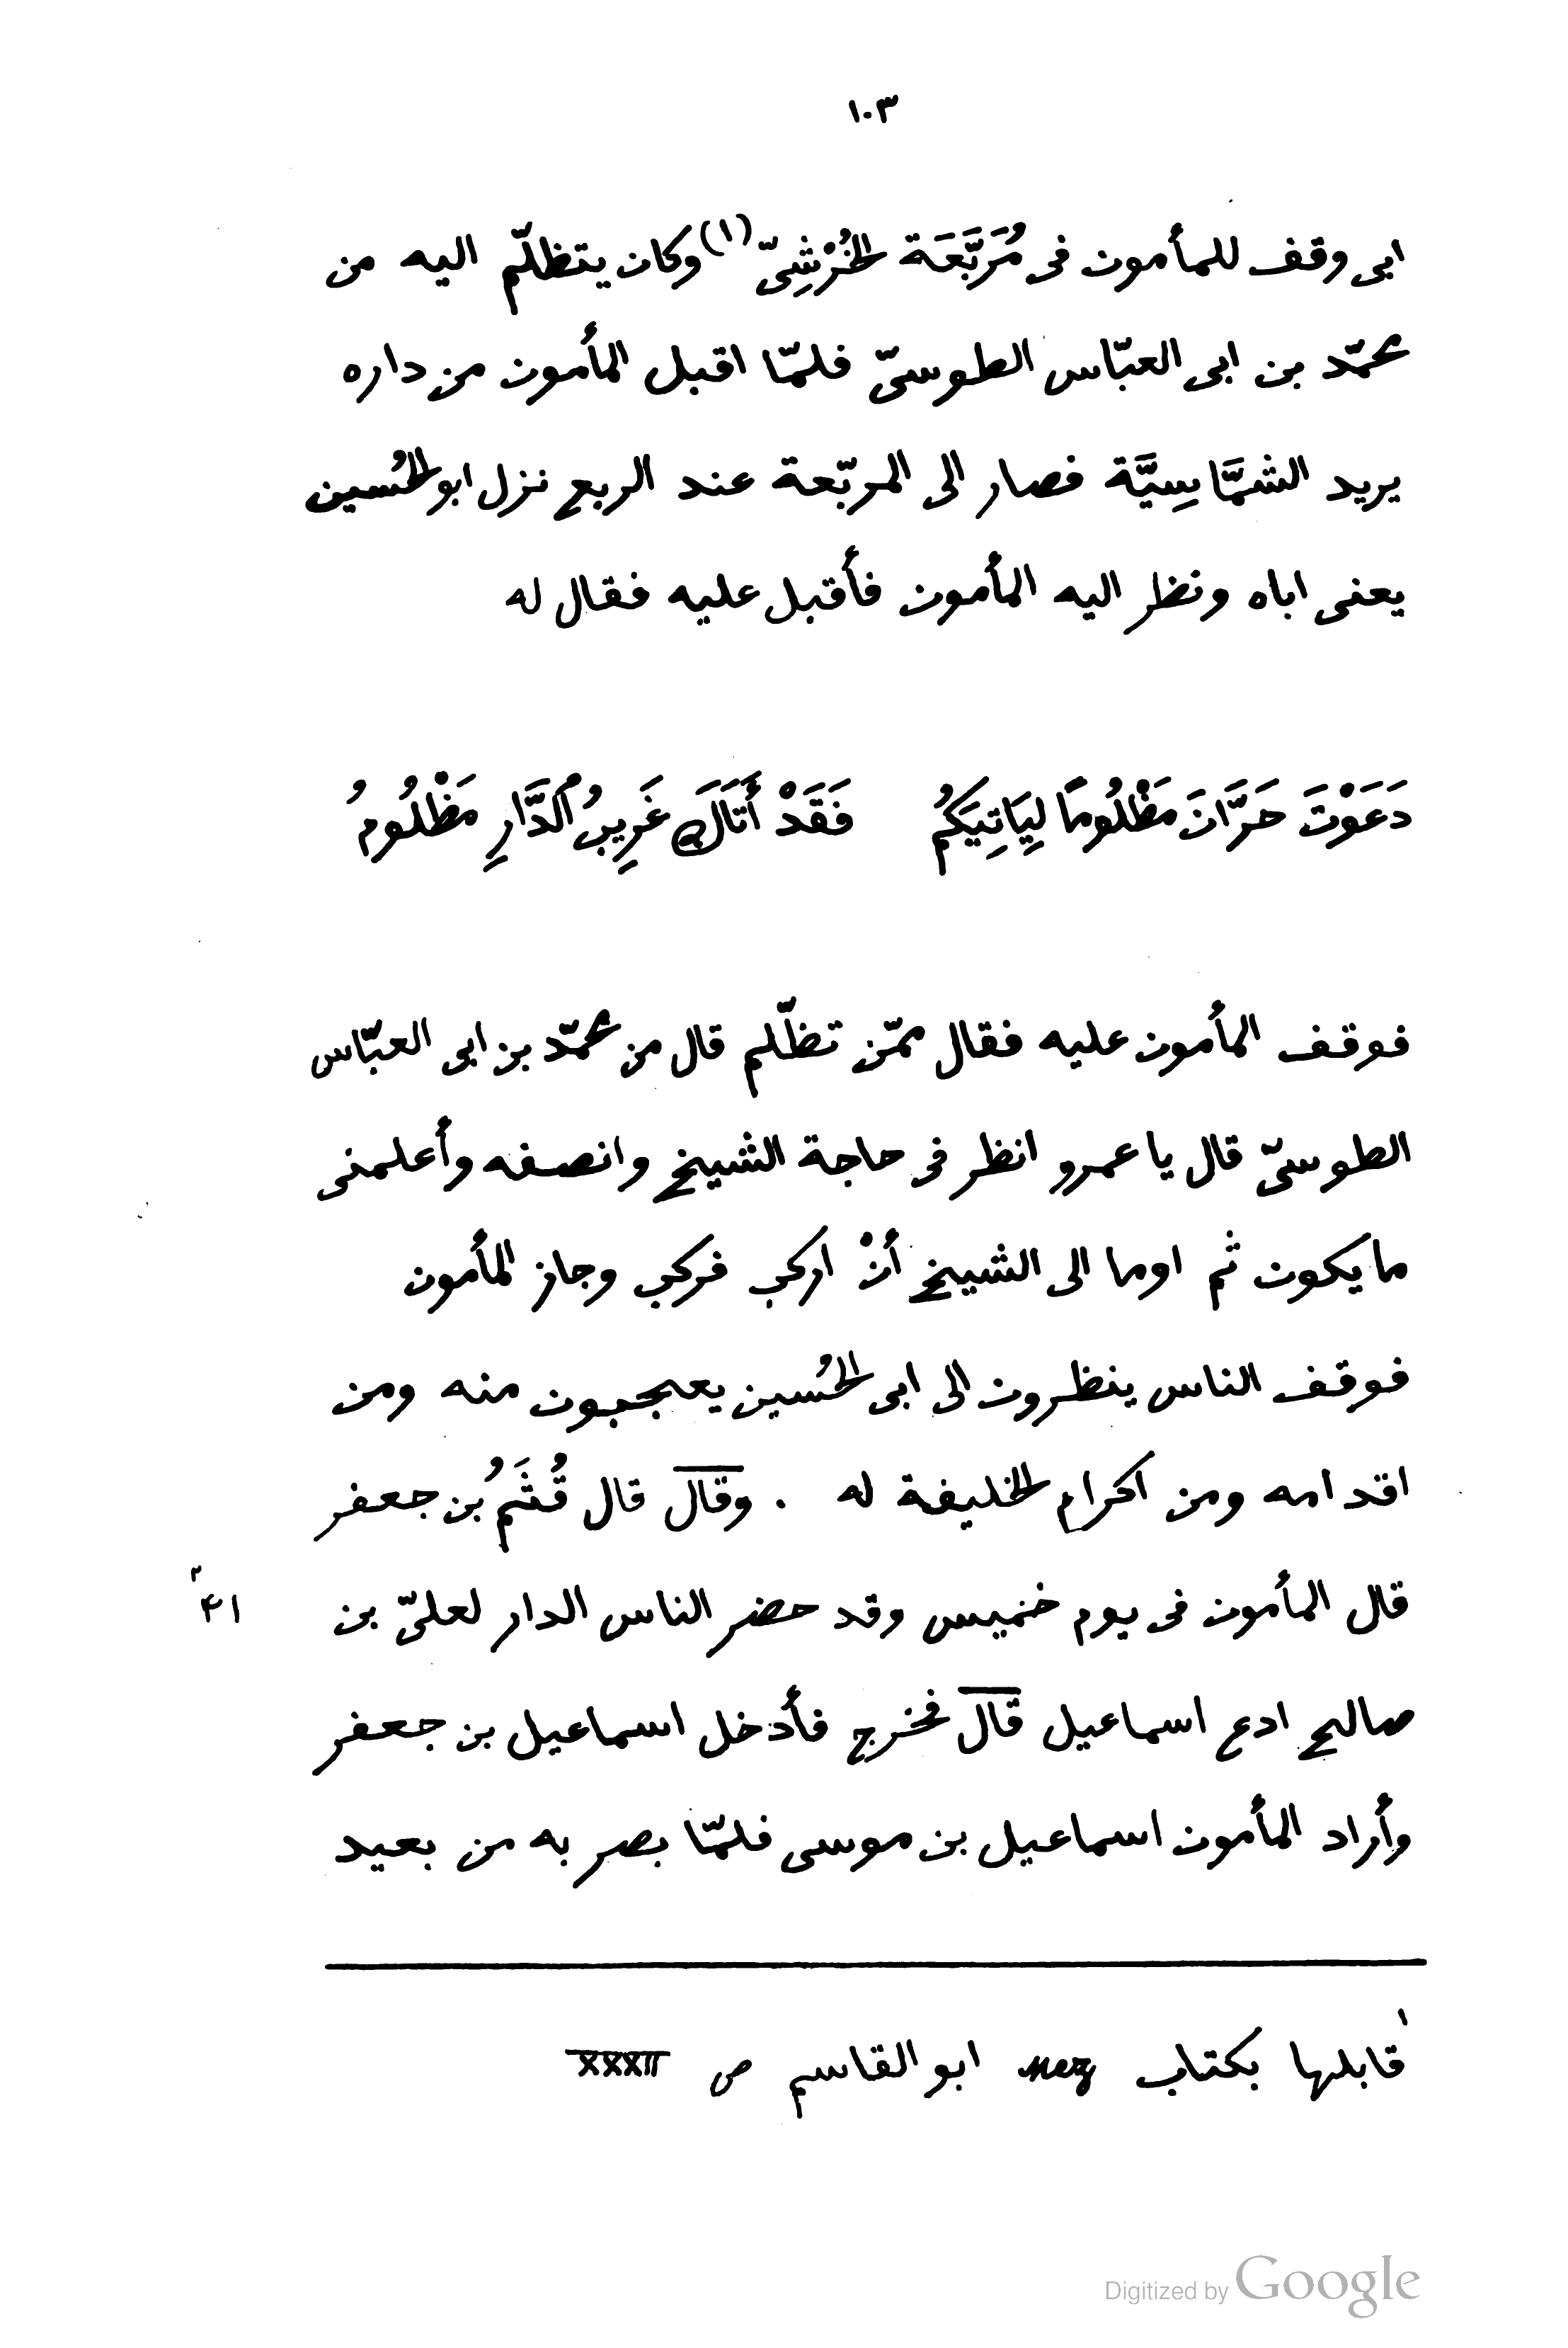 ١٠٣
ابى وقف للمأمون فى مُرَبَّعَة الخُرْشِىّ (١) وكان يتظلّم اليه من
محمّد بن ابى العبّاس الطوسىّ فلمّا اقبل المأمون من داره
يريد الشمَّاسِيَّة فصار الى المربّعة عند الربع نزل ابو الحُسين
يعنى اباه ونظر اليه المأمون فأقبل عليه فقال له
دَعَوْتَ حَرَّانَ مَظْلُومًا لِيَاتِيَكُم فَقَدْ أَتَاكَ غَرِيبُ ٱلدَّارِ مَظْلُومُ
فوقف المأمون عليه فقال ممّن تظّلم قال من محمّد بن ابى العبّاس
الطوسىّ قال يا عمرو انظر فى حاجة الشيخ وانصفه وأعلمنى
ما يكون ثم اوما الى الشيخ أنْ اركب فركب وجاز المأمون
فوقف الناس ينظرون الى ابى الحُسين يعجبون منه ومن
اقدامه ومن اكرام الخليفة له . وقال قال قُثَمُ بن جعفر
قال المأمون فى يوم خميس وقد حضر الناس الدار لعلىّ بن
صالح ادع اسماعيل قال فخرج فأدخل اسماعيل بن جعفر
وأراد المأمون اسماعيل بن موسى فلمّا بصر به من بعيد
١ قابلها بكتاب Mez ابو القاسم ص XXXII
Digitized by Google